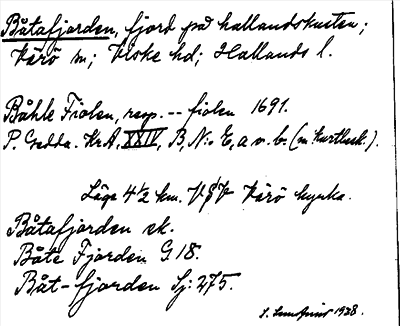 Båtafjorden, fjord på hallandskusten;
Värö sn; Viske hd; Hallands l.
Båhle Fiolen, resp. -- fiolen 1691.
P. Gedda. KrA, XXIV, B, N:o E, a o. b.
Läge 4½ km. V Värö kyrka.
Båtafjorden ek.
Båte Fjorden G 18.
Båt-fjorden Sj: 275.
1928.